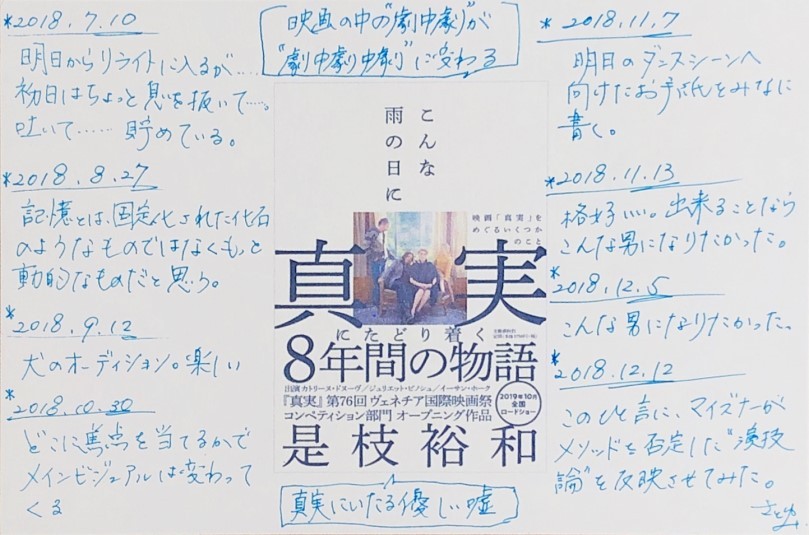 *2018.7.10
明日からリライトに入るが….
初日はちょっと息を抜いて….。
吐いて…… 貯めている。
*2018.8.27
記憶とは、固定化された化石
のようなものではなくもっと
動的なものだと思う。
*2018.9.12
犬のオーディション。楽しい
*2018.10.30
どこに焦点を当てるかで
メインビジュアルは変わって
くる
映画の中の"劇中劇"が
"劇中劇中劇"に変わる
こんな
雨の日に
映画「真実」を
めぐるいくつか
のこと
真実
にたどり着く
8年間の物語
出演 カトリーヌ・ドヌーヴ/ジュリエット・ビノシュ/イーサン・ホーク
『真実』第76回 ヴェネチア国際映画祭
コンペティション部門 オープニング作品
2019年10月
全国
ロードショー
是枝裕和
真実にいたる優しい嘘
*2018.11.7
明日のダンスシーンへ
向けたお手紙をみなに
書く。
*2018.11.13
格好いい。出来ることなら
こんな男になりたかった。
*2018.12.5
こんな男になりたかった。
*2018.12.12
このひと言に、マイズナーが
メソッドを否定した"演技
論"を反映させてみた。